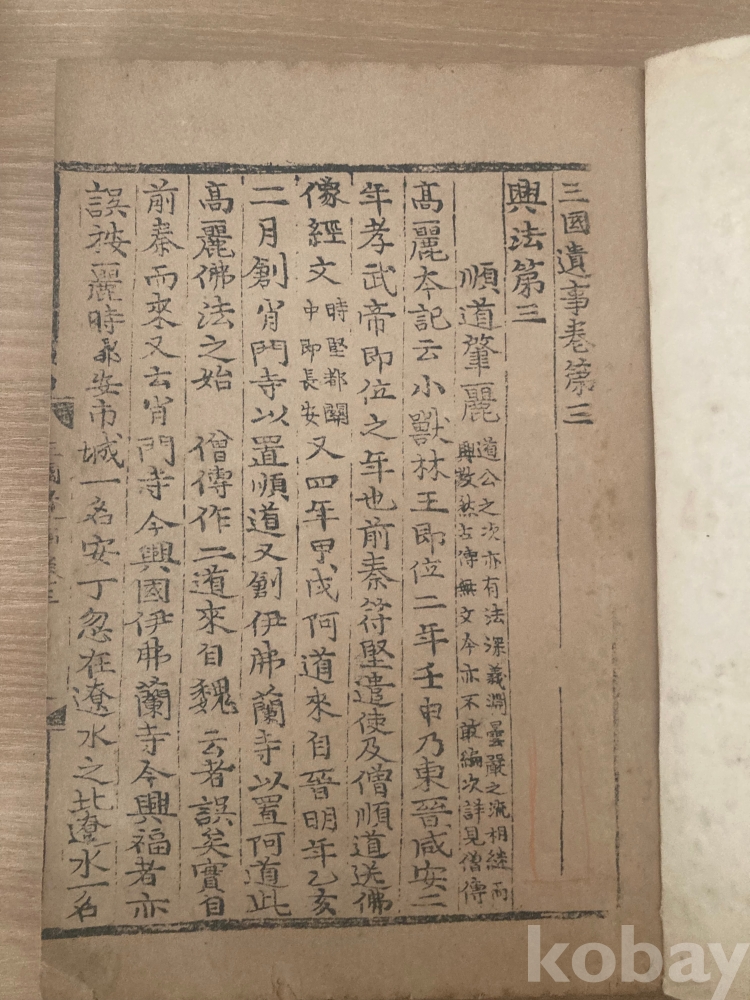 三國遺事卷第三
興法第三
順道肇麗 道公之次亦有法深義淵曇嚴之流相継而
興教然古傳無文今亦不敢編次詳見僧傳
髙麗夲記云小獸林王即位二年壬申乃東晉咸安二
年孝武帝即位之年也前秦符堅遣使及僧順道送佛
像經文 時堅都關
中即長安 又四年甲戌阿道來自晉明年乙亥
二月創肖門寺以置順道又創伊弗蘭寺以置阿道此
髙麗佛法之始 僧傳作二道來自魏云者誤矣實自
前秦而來又云肖門寺今興國伊弗蘭寺今興福者亦
誤按麗時都安市城一名安丁忽在遼水之北遼水一名
kobay